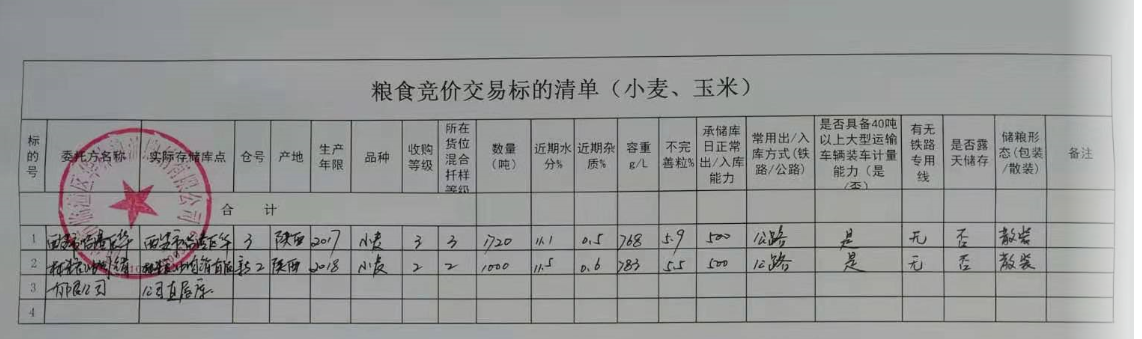 粮食竞价交易标的清单（小麦、玉米）
标的号 委托方名称 实际存储库点 仓号 产地 生产年限 品种 收购等级 所在货位混合扦样等级 数量（吨） 近期水分% 近期杂质% 容重g/L 不完善粒% 承储库日正常出/入库能力 常用出/入库方式(铁路/公路) 是否具备40吨以上大型运输车辆装车计量能力（是/否） 有无铁路专用线 是否露天储存 储粮形态(包装/散装) 备注
合 计
1 3 陕西 2017 小麦 3 3 1720 11.1 0.5 768 5.9 500 公路 是 无 否 散装
2 新2 陕西 2018 小麦 2 2 1000 11.5 0.6 783 5.5 500 公路 是 无 否 散装
3 有限公司 公司直属库
4